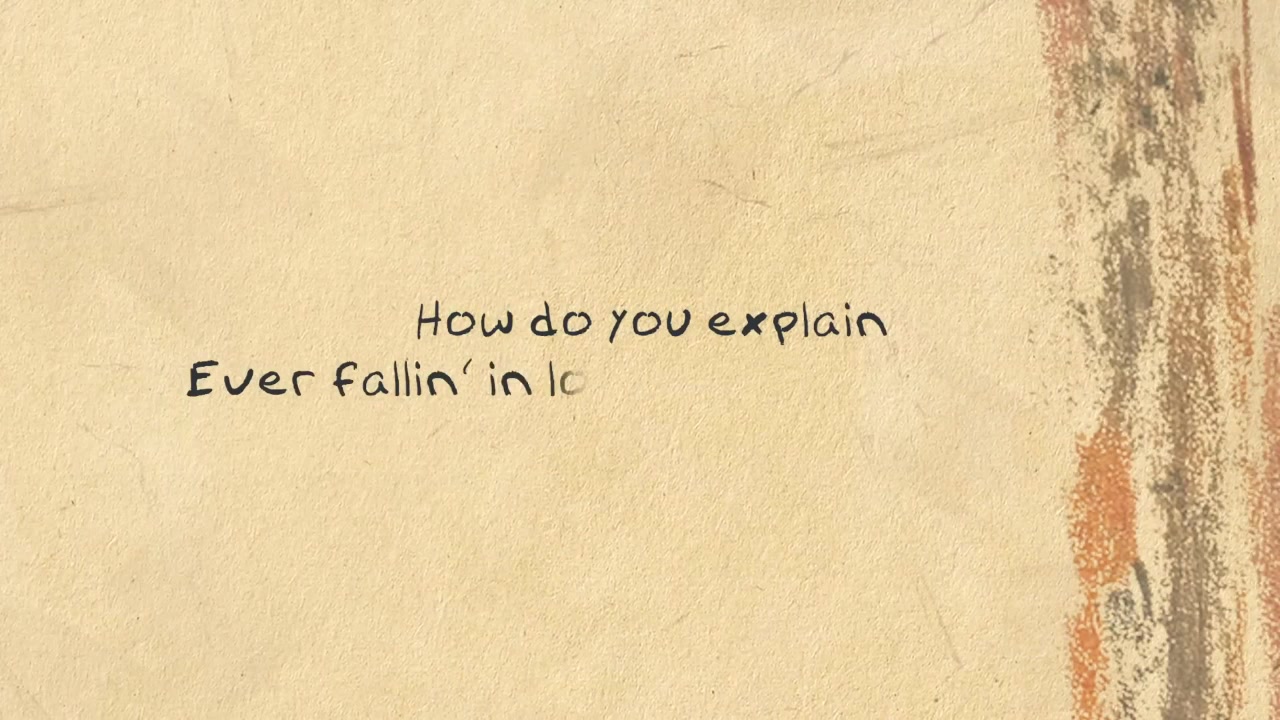 How do you explain
Ever fallin' in lo